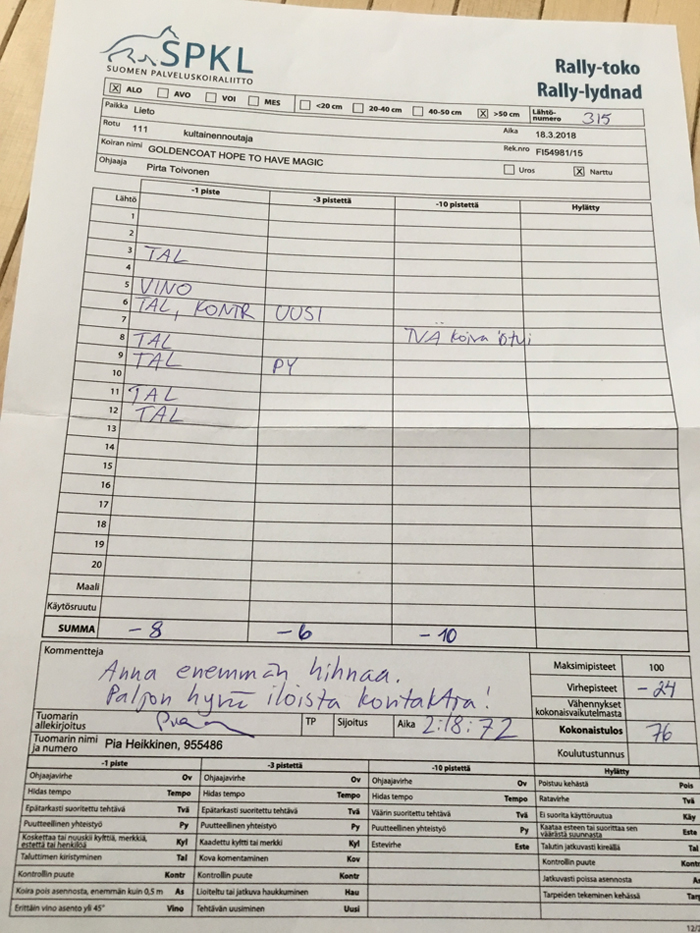 SPKL
SUOMEN PALVELUSKOIRALIITTO
Rally-toko
Rally-lydnad
X ALO AVO VOI MES <20 cm 20-40 cm 40-50 cm X >50 cm Lähtö-numero 315
Paikka Lieto Aika 18.3.2018
Rotu 111 kultainennoutaja Rek.nro FI54981/15
Koiran nimi GOLDENCOAT HOPE TO HAVE MAGIC Uros X Narttu
Ohjaaja Pirta Toivonen
Lähtö -1 piste -3 pistettä -10 pistettä Hylätty
1
2
3 TAL
4
5 VINO
6 TAL, KONTR UUSI
7
8 TAL TVÄ koira
9 TAL PY
10
11 TAL
12 TAL
13
14
15
16
17
18
19
20
Maali
Käytösruutu
SUMMA -8 -6 -10
Kommentteja
Anna enemmän hihnaa.
Paljon hyvä iloista kontaktia!
Maksimipisteet 100
Virhepisteet -24
Vähennykset kokonaisvaikutelmasta
Kokonaistulos 76
Koulutustunnus
Tuomarin allekirjoitus TP Sijoitus Aika 2:18:72
Tuomarin nimi ja numero Pia Heikkinen, 955486
-1 piste -3 pistettä -10 pistettä Hylätty
Ohjaajavirhe Ov Ohjaajavirhe Ov Ohjaajavirhe Ov Poistuu kehästä Pois
Hidas tempo Tempo Hidas tempo Tempo Hidas tempo Tempo Ratavirhe Tvä
Epätarkasti suoritettu tehtävä Tvä Epätarkasti suoritettu tehtävä Tvä Väärin suoritettu tehtävä Tvä Ei suorita käyttöruutua Käy
Puutteellinen yhteistyö Py Puutteellinen yhteistyö Py Puutteellinen yhteistyö Py Kaataa esteen tai suorittaa sen väärästä suunnasta Este
Koskettaa tai nuuskii kylttiä, merkkiä, estettä tai henkilöä Kyl Kaadettu kyltti tai merkki Kyl Estevirhe Este Talutin jatkuvasti kireällä Tal
Taluttimen kiristyminen Tal Kova komentaminen Kov Kontrollin puute Kontr
Kontrollin puute Kontr Kontrollin puute Kontr Jatkuvasti poissa asennosta As
Koira pois asennosta, enemmän kuin 0,5 m As Lioiteltu tai jatkuva haukkuminen Hau Tarpeiden tekeminen kehässä Tarp
Erittäin vino asento yli 45° Vino Tehtävän uusiminen Uusi